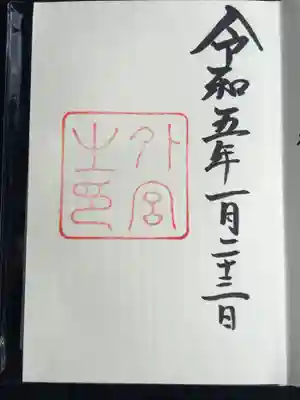 令和五年一月二十三日
外宮
之印